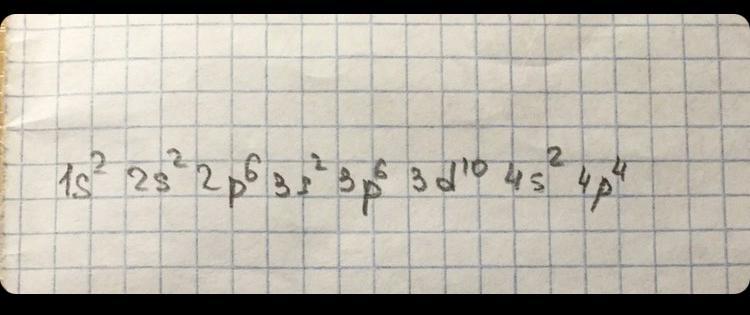 1s² 2s² 2p⁶ 3s² 3p⁶ 3d¹⁰ 4s² 4p⁴